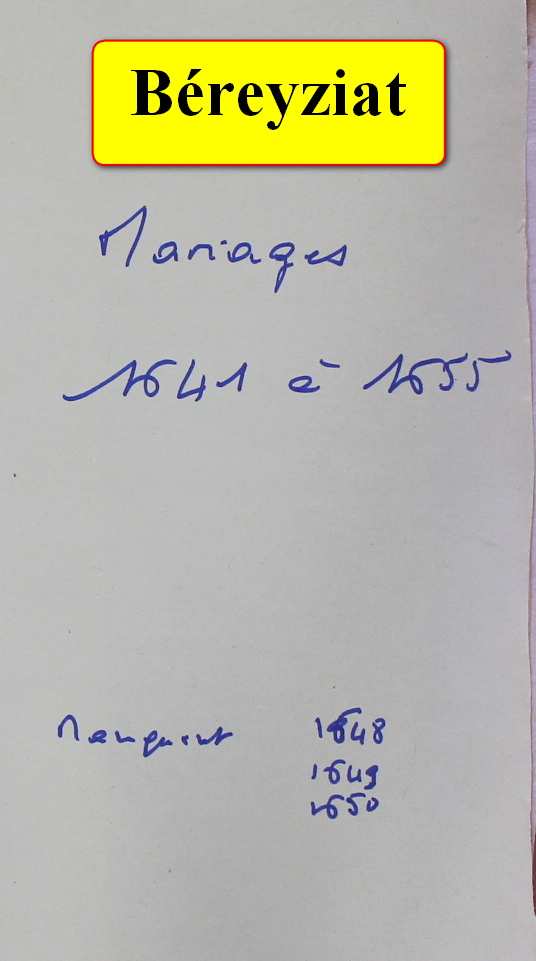 Béreyziat
Mariages
1641 à 1655
Manquent 1648
1649
1650